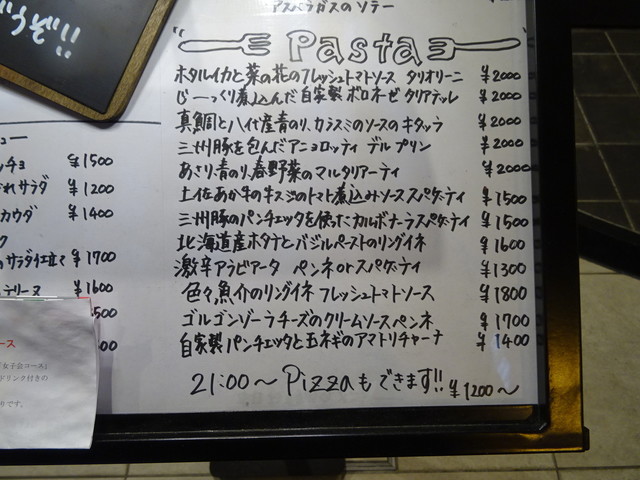 どうぞ!!
アスパラガスのソテー
Pasta
ホタルイカと菜の花のフレッシュトマトソース タリオリーニ ¥2000
じーっくり煮込んだ自家製ボロネーゼ タリアテッレ ¥2000
真鯛と八代産青のり、カラスミのソースのキタッラ ¥2000
三州豚を包んだアニョロッティ デル プリン ¥2000
あさり、青のり、春野菜のマルタリアーティ ¥2000
土佐あか牛の牛スジのトマト煮込みソース スパゲティ ¥1500
三州豚のパンチェッタを使ったカルボナーラスパゲティ ¥1500
北海道産ホタテとバジルペーストのリングイネ ¥1600
激辛アラビアータ ペンネorスパゲティ ¥1300
色々魚介のリングイネ フレッシュトマトソース ¥1800
ゴルゴンゾーラチーズのクリームソースペンネ ¥1700
自家製パンチェッタと玉ネギのアマトリチャーナ ¥1400
21:00〜 Pizzaもできます!! ¥1200〜
ュー
ッチョ ¥1500
サラダ ¥1200
カウダ ¥1400
ク
のサラダ仕立て ¥1700
テリーヌ ¥1600
500
00
ース
「女子会コース」
ドリンク付きの
りです。